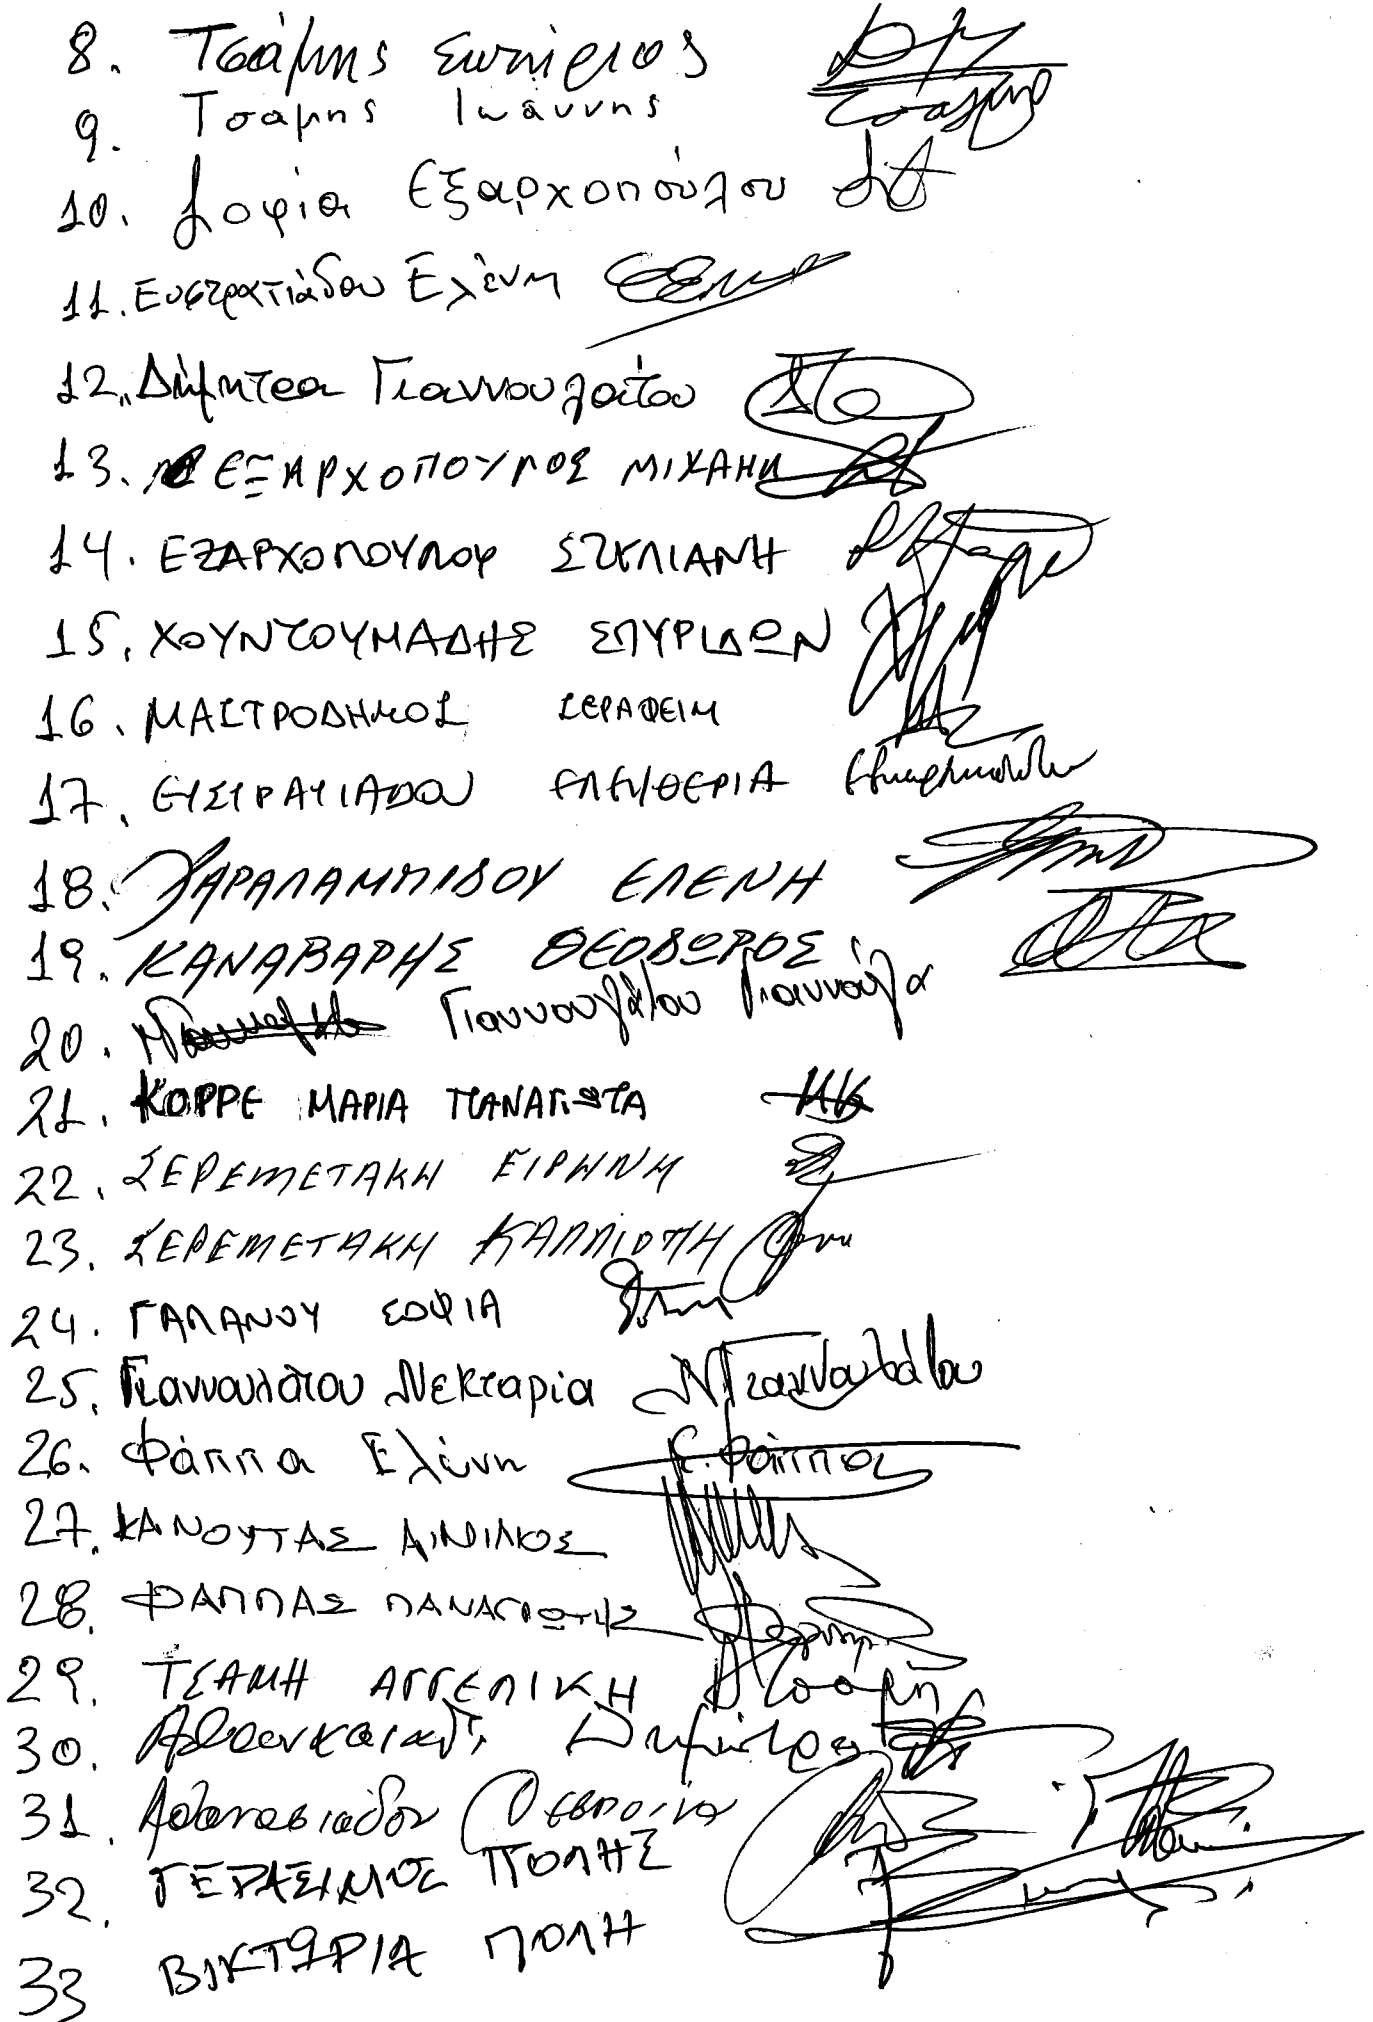 8. Τσάμης Σωτήριος
9. Τσαμης Ιωάννης
10. Σοφία Εξαρχοπούλου
11. Ευστρατιάδου Ελένη
12. Δήμητρα Γιαννουλάτου
13. ΕΞΑΡΧΟΠΟΥΛΟΣ ΜΙΧΑΗΛ
14. ΕΞΑΡΧΟΠΟΥΛΟΥ ΣΤΥΛΙΑΝΗ
15. ΧΟΥΝΤΟΥΜΑΔΗΣ ΣΠΥΡΙΔΩΝ
16. ΜΑΣΤΡΟΔΗΜΟΣ ΣΕΡΑΦΕΙΜ
17. ΕΥΣΤΡΑΤΙΑΔΟΥ ΕΛΕΥΘΕΡΙΑ
18. ΧΑΡΑΛΑΜΠΙΔΟΥ ΕΛΕΝΗ
19. ΚΑΝΑΒΑΡΗΣ ΘΕΟΔΩΡΟΣ
20. Γιαννουλάτου Γιαννούλα
21. ΚΟΡΡΕ ΜΑΡΙΑ ΠΑΝΑΓΙΩΤΑ
22. ΣΕΡΕΜΕΤΑΚΗ ΕΙΡΗΝΗ
23. ΣΕΡΕΜΕΤΑΚΗ ΚΑΛΛΙΟΠΗ
24. ΓΑΛΑΝΟΥ ΣΟΦΙΑ
25. Γιαννουλάτου Νεκταρία Ν Γιαννουλάτου
26. Φάππα Ελένη Ε. Φάππα
27. ΚΑΝΟΥΤΑΣ ΑΙΜΙΛΙΟΣ
28. ΦΑΠΠΑΣ ΠΑΝΑΓΙΩΤΗΣ
29. ΤΣΑΜΗ ΑΓΓΕΛΙΚΗ Α Τσαμη
30. Δημήτρα
31. Αθανασιάδου Δέσποινα
32. ΓΕΡΑΣΙΜΟΣ ΠΟΛΗΣ
33 ΒΙΚΤΩΡΙΑ ΠΟΛΗ